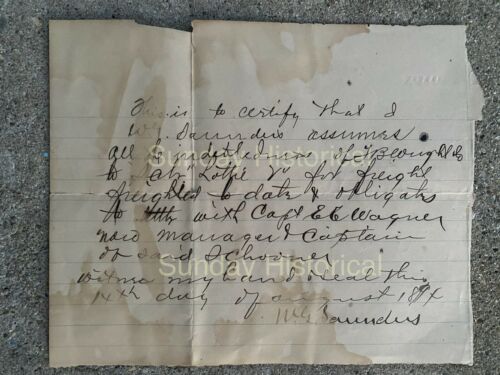 This is to certify that I
W. Saunders assumes
all indebtedness of
to for freight
freighted to date & obligates
to with Capt E C Wagner
now manager & Captain
of said Schooner
witness my hand & seal this
14th day of august
Saunders
Sunday Historical
Sunday Historical